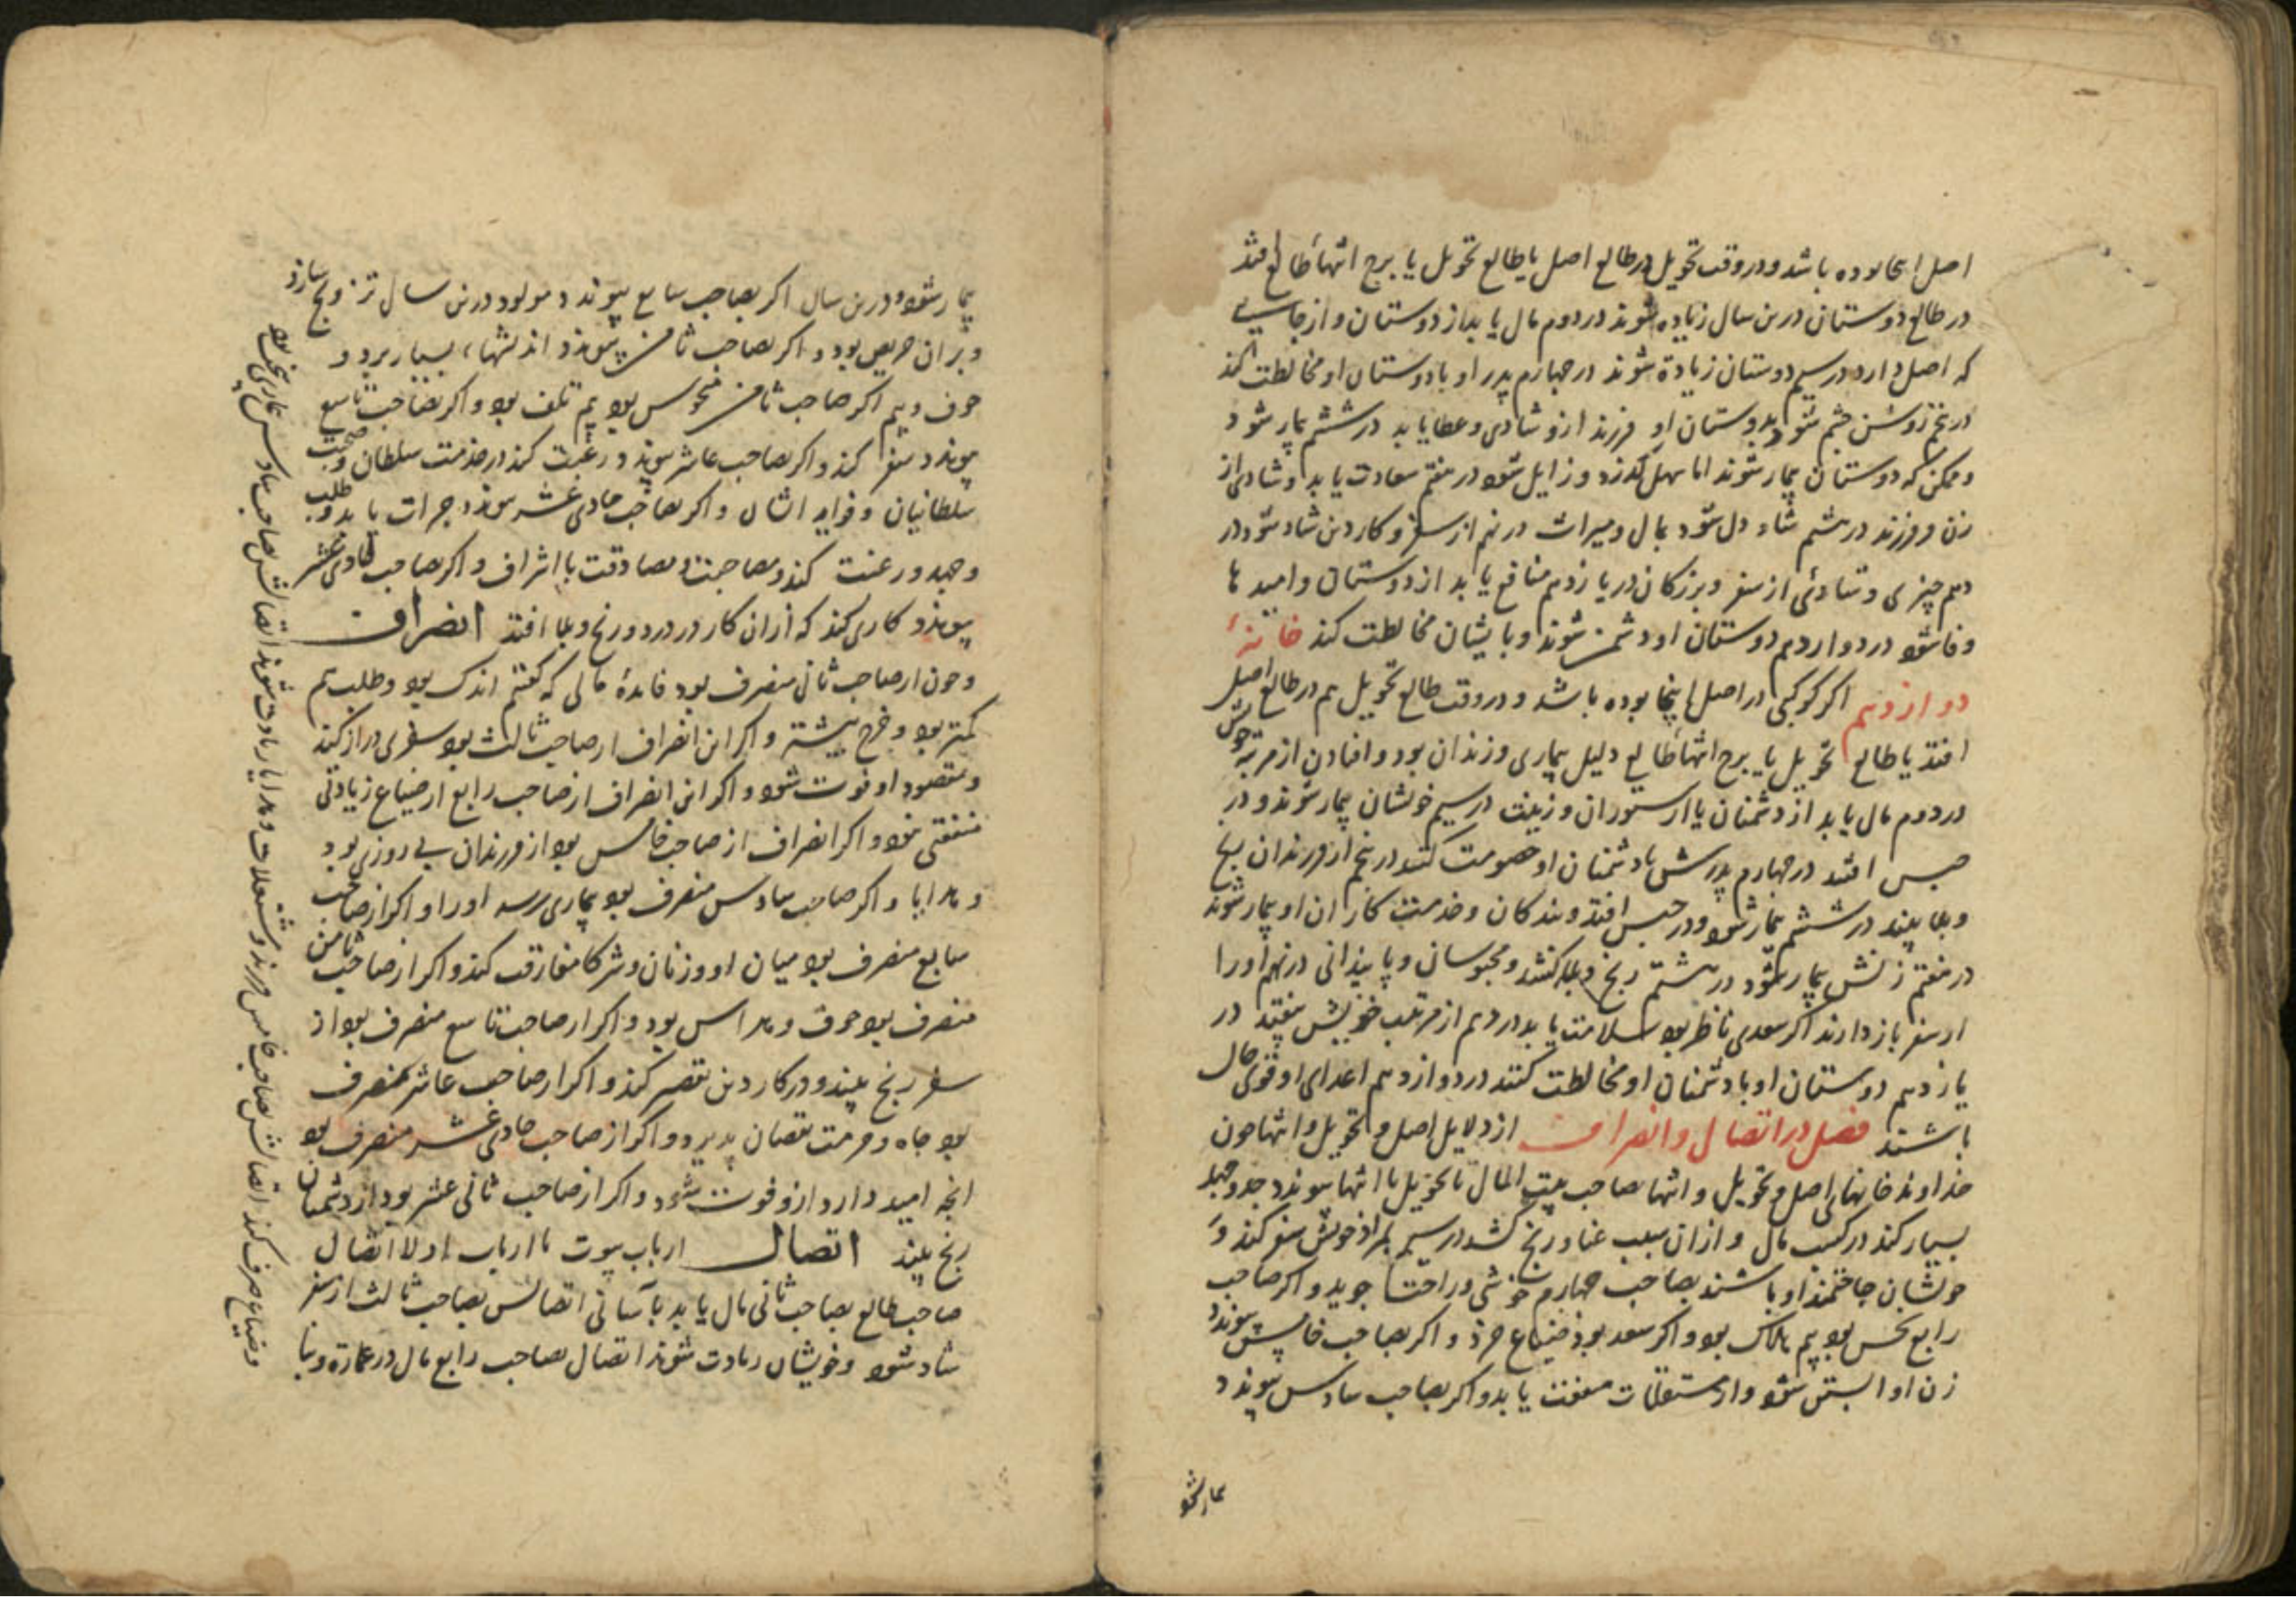 اصل اینجا بوده باشد و در وقت تحویل در طالع اصل یا طالع تحویل یا برج انتها طالع افتد
در طالع دوستان درین سال زیاده شوند در دوم مال یابد از دوستان و از جایی
که اصل دارد در سیم دوستان زیادة شوند در چهارم پدر او با دوستان او مخالطت کند
در پنجم روشن چشم شود بدوستان او فرزند ازو شادی و عطا یابد در ششم بیمار شود
و ممکن که دوستان بیمار شوند اما سهل گذرد و زایل شود در هفتم سعادت یابد و شادی از
زن و فرزند در هشتم شاد دل شود بمال و میراث در نهم از سفر و کار دین شاد شود در
دهم چیزی و شادئی از سفر و بزرکان در یازدهم منافع یابد از دوستان و امیدها
وفا شود در دوازدهم دوستان او دشمن شوند و با یشان مخالطت کند خانهٔ
دوازدهم اکر کوکبی در اصل اینجا بوده باشد و در وقت طالع تحویل هم در طالع اصل
افتد یا طالع تحویل یا برج انتها طالع دلیل بیماری و زندان بود و افتادن از مرتبه خویش
در دوم مال یابد از دشمنان یا از ستوران و زینت در سیم خویشان بیمار شوند و در
حبس افتد در چهارم پدرش با دشمنان او خصومت کند در پنجم از فرزندان رنج
و بلا بیند در ششم بیمار شود و در حبس افتد و بندکان و خدمت کاران او بیمار شوند
در هفتم زنش بیمار شود در هشتم رنج و بلا کشد و محبوسانی و پابندانی در نهم او را
از سفر باز دارند اکر سعدی ناظر بود سلامت یابد در دهم از مرتبه خویش بیفتد در
یازدهم دوستان او با دشمنان او مخالطت کنند در دوازدهم اعدای او قوی حال
باشند فصل در اتصال و انصراف از دلایل اصل و تحویل و انتها چون
خداوند خانهای اصل و تحویل و انتها بصاحب بیت المال تا تحویل با انتها پیوندد جد و جهد
بسیار کند در کسب مال و ازان سبب عنا و رنج کشد در سیم بمراد خویش سفر کند و
خویشان حاجتمند او باشند بصاحب چهارم خوشی و راحتها جوید و اکر صاحب
رابع نحس بود بیم هلاک بود و اکر سعد بود ضیاع خرد و اکر بصاحب خامس پیوندد
زن او آبستن شود و از مستغلات منفعت یابد و اکر بصاحب سادس پیوندد
بیمار شود
بیمار شود و درین سال اکر بصاحب سابع پیوندد مولود درین سال تزویج سازد
و بران حریص بود و اکر بصاحب ثامن پیوندد اندیشهاء بسیار برد و
خوف و بیم اکر صاحب ثامن منحوس بود بیم تلف بود و اکر بصاحب تاسع
پیوندد سفر کند و اکر بصاحب عاشر پیوندد رغبت کند در خدمت سلطان و صحبت
سلطانیان و فواید ایشان و اکر بصاحب حادی عشر پیوندد جرات یابد و طلب
و جهد و رغبت کند و مصاحبت و مصادقت با اشراف و اکر بصاحب ثانی عشر
پیوندد کاری کند که ازان کار در درد و رنج و بلا افتد انصراف
و چون از صاحب ثانی منصرف بود فایدهٔ مالی که گفتم اندک بود و طلب هم
کمتر بود و خرج بیشتر و اکر این انصراف از صاحب ثالث بود سفری دراز کند
و مقصود او فوت شود و اکر این انصراف از صاحب رابع از ضیاع زیادتی
منفعتی نبود و اکر انصراف از صاحب خامس بود از فرزندان بی روزی بود
و هدایا و اکر صاحب سادس منصرف بود بیماری رسد او را و اکر از صاحب
سابع منصرف بود میان او و زنان و شرکا مفارقت کند و اکر از صاحب ثامن
منصرف بود خوف و هراس بود و اکر از صاحب تاسع منصرف بود از
سفر رنج بیند و در کار دین تقصیر کند و اکر از صاحب عاشر منصرف
بود جاه و حرمت نقصان پذیرد و اکر از صاحب حادی عشر منصرف بود
انچه امید دارد ازو فوت شود و اکر از صاحب ثانی عشر بود از دشمنان
رنج بیند اتصال ارباب بیوت با ارباب اولا اتصال
صاحب طالع بصاحب ثانی مال یابد بآسانی اتصالش بصاحب ثالث از سفر
شاد شود و خویشان زیادت شوند اتصال بصاحب رابع مال در عمارة و بنا
و ضیاع صرف کند اتصالش بصاحب خامس فرزند و مستغلات و هدایا زیادت شوند اتصالش بصاحب سادس بیماری